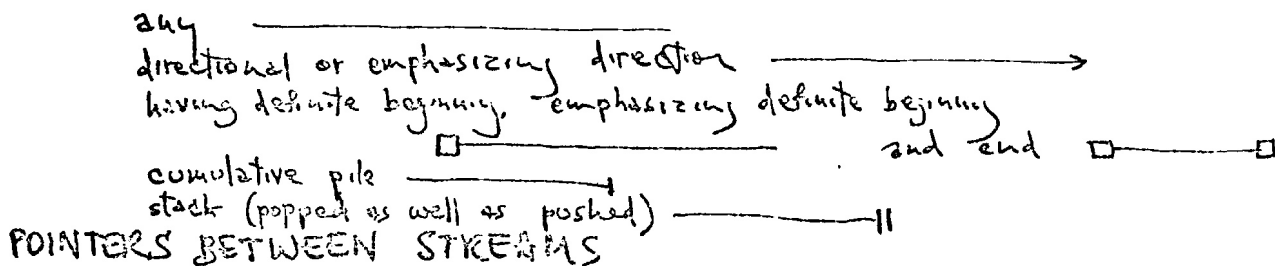 any
directional or emphasizing direction
having definite beginning, emphasizing definite beginning
and end
cumulative pile
stack (popped as well as pushed)
POINTERS BETWEEN STREAMS